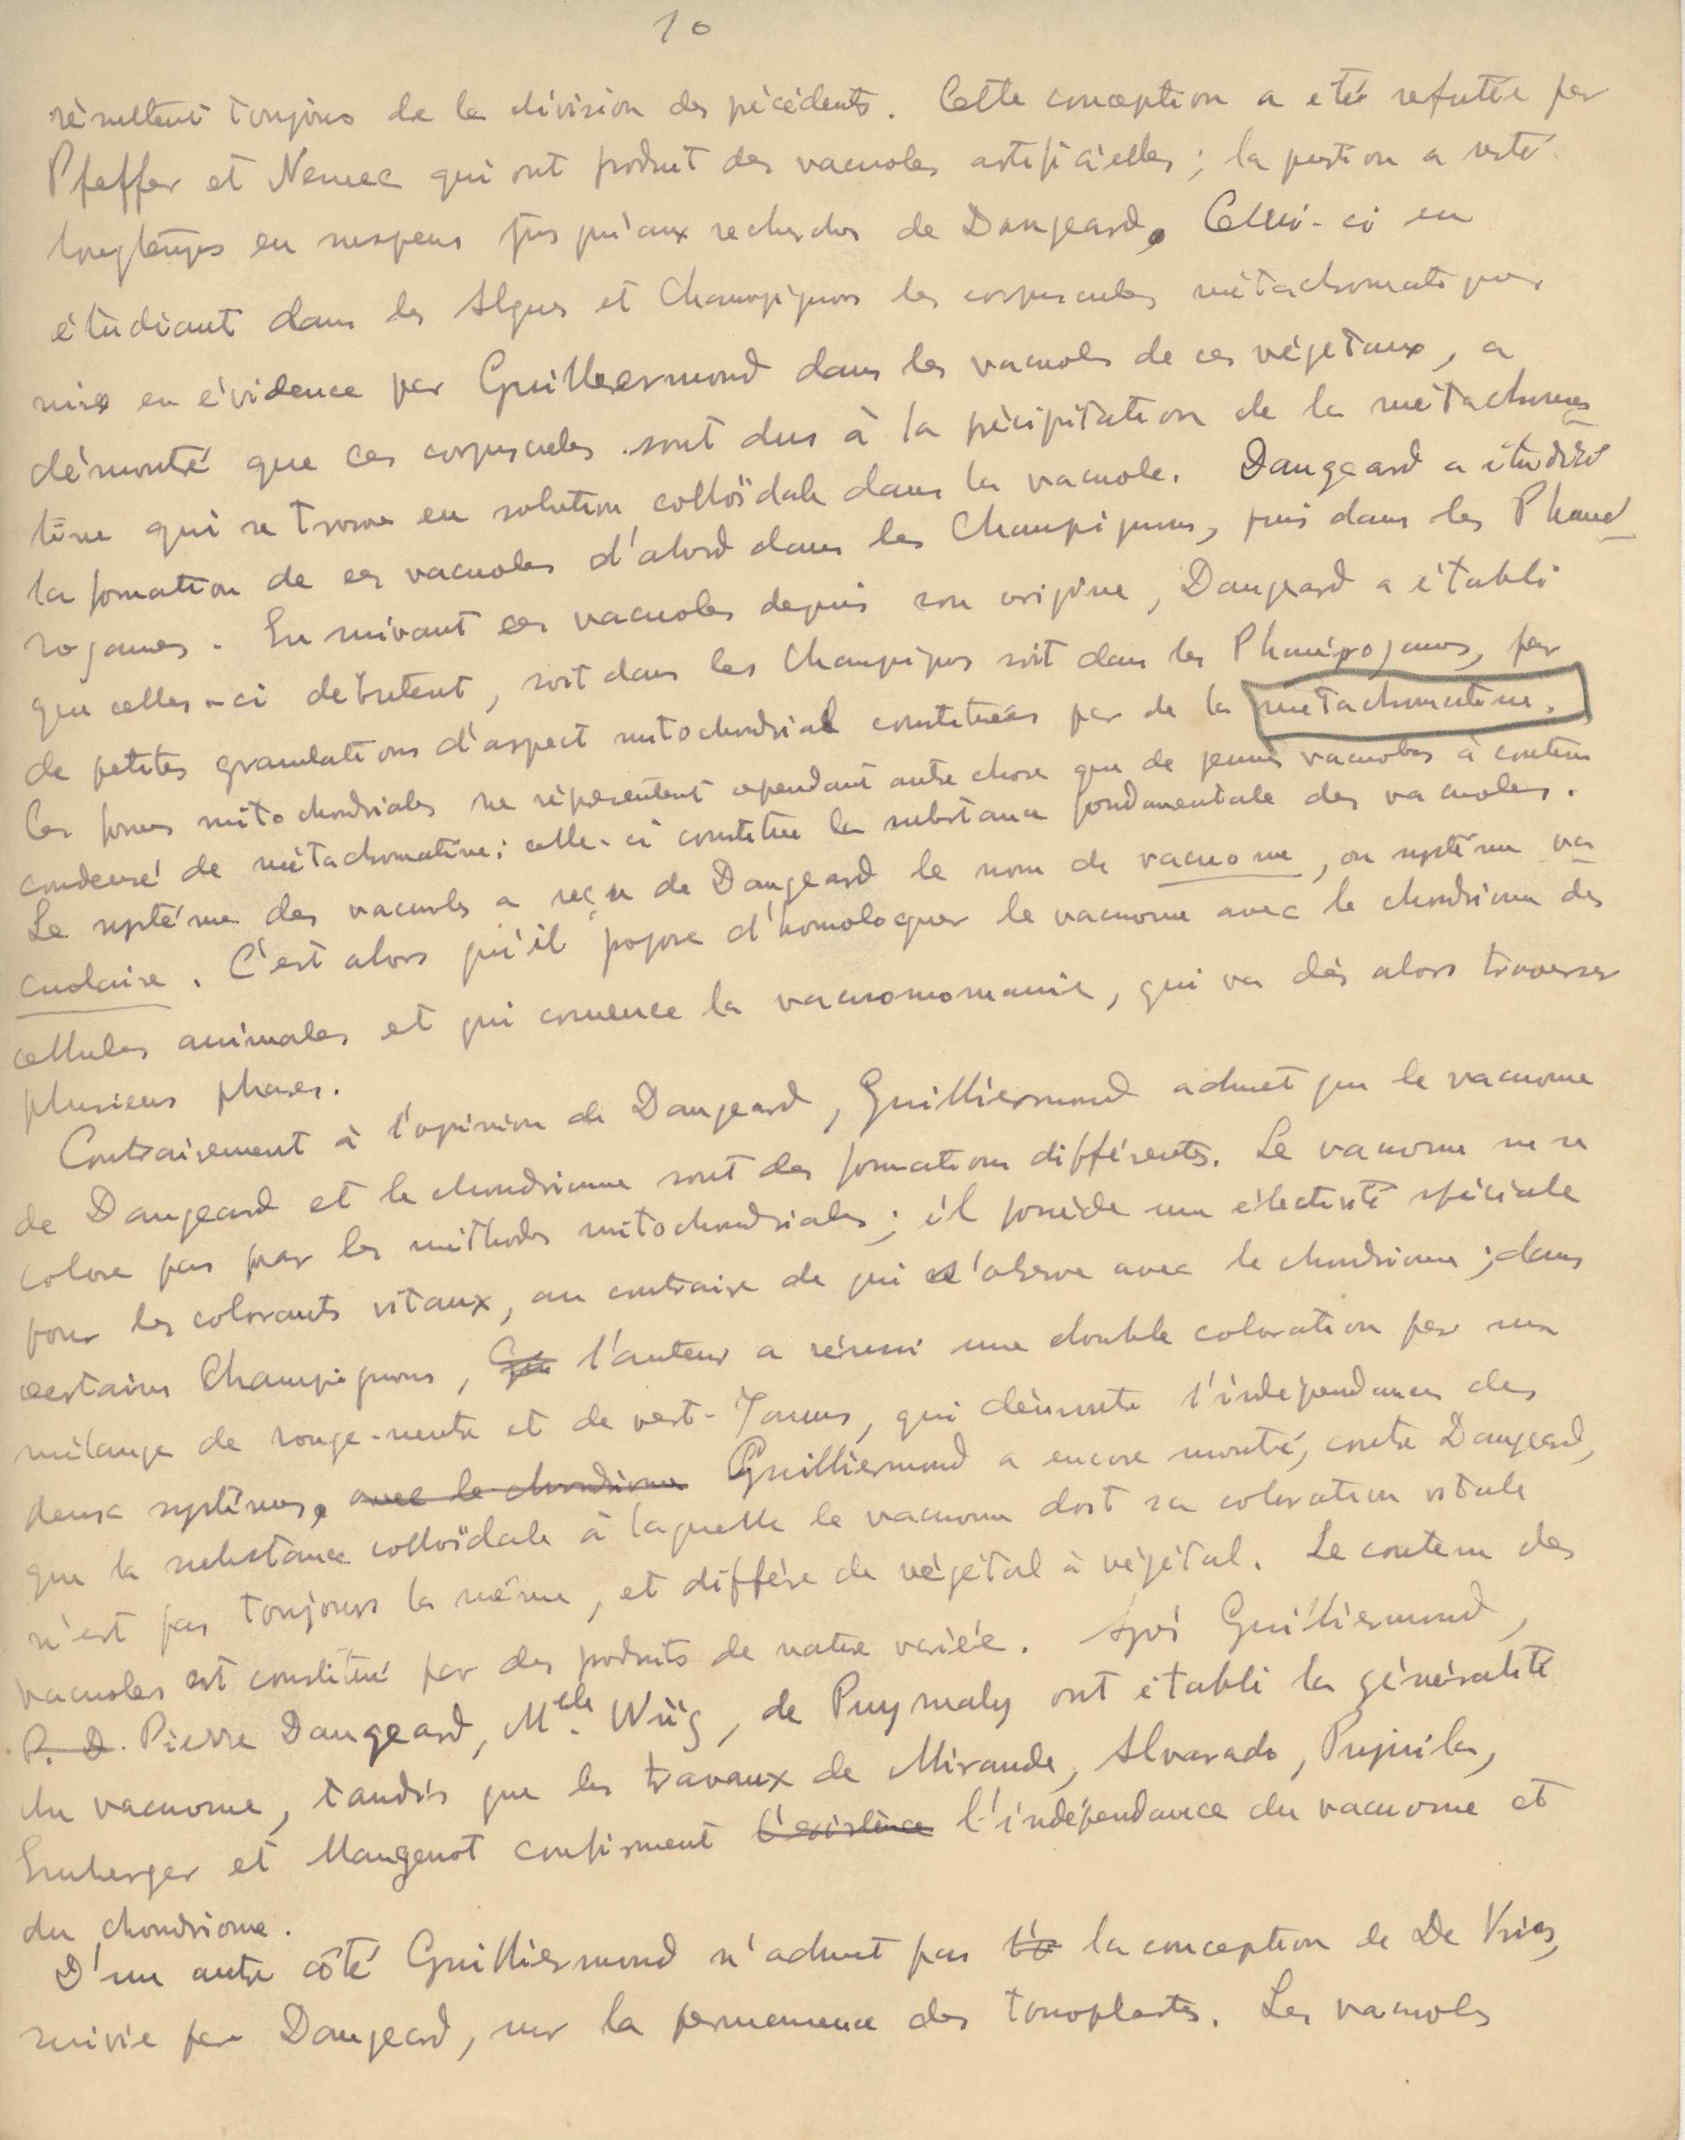 10
résultent toujours de la division des précédents. Cette conception a été refutée par
Pfeffer et Nemec qui ont produit des vacuoles artificielles; la question a resté
longtemps en suspens jusqu'aux recherches de Dangeard. Celui-ci en
étudiant dans les Algues et Champignons les corpuscules métachromatiques
mis en évidence par Guilliermond dans les vacuoles de ces végétaux, a
démontré que ces corpuscules sont dus à la précipitation de la métachroma
tine qui se trouve en solution colloïdale dans la vacuole. Dangeard a étudié
la formation de ces vacuoles d'abord dans les Champignons, puis dans les Phané
rogames. En suivant ces vacuoles depuis son origine, Dangeard a établi
que celles-ci debutent, soit dans les Champignons soit dans les Phanérogames, par
de petites granulations d'aspect mitochondrial constituées par de la métachromatine.
Ces formes mitochondriales ne répresentent cependant autre chose que de jeunes vacuoles à contenu
condensé de métachromatine; celle-ci constitue la substance fondamentale des vacuoles.
Le système des vacuoles a reçu de Dangeard le nom de vacuome, ou système va
cuolaire. C'est alors qu'il propose d'homologuer le vacuome avec le chondriome des
cellules animales et qui comence la vacuomomanie, qui va dès alors traverser
plusieurs phases.
Contrairement à l'opinion de Dangeard, Guilliermond admet que le vacuome
de Dangeard et le chondriome sont des formations différentes. Le vacuome ne se
colore pas par les méthodes mitochondriales; il posède une électivité spéciale
pour les colorants vitaux, au contraire de qui s'observe avec le chondriome; dans
certains Champignons, l'auteur a réussi une double coloration par un
mélange de rouge-neutre et de vert-Janus, qui démontre l'indépendance des
deux systèmes. avec le chondriome Guilliermond a encore montré, contre Dangeard,
que la substance colloïdale à laquelle le vacuome doit sa coloration vitale
n'est pas toujours la même, et diffère de végétal à végétal. Le contenu des
vacuoles est constitué par des produits de nature variée. Guilliermond,
P. D. Pierre Dangeard, Melle. de Puymaly ont établi la généralité
du vacuome, tandis que les travaux de Mirande, Alvarado, Pujiula,
Emberger et Mangenot confirment l'existence l'indépendance du vacuome et
du chondriome.
D'un autre côté Guilliermond n'admet pas la conception de De Vries,
suivie par Dangeard, sur la permanence des tonoplastes. Les vacuoles